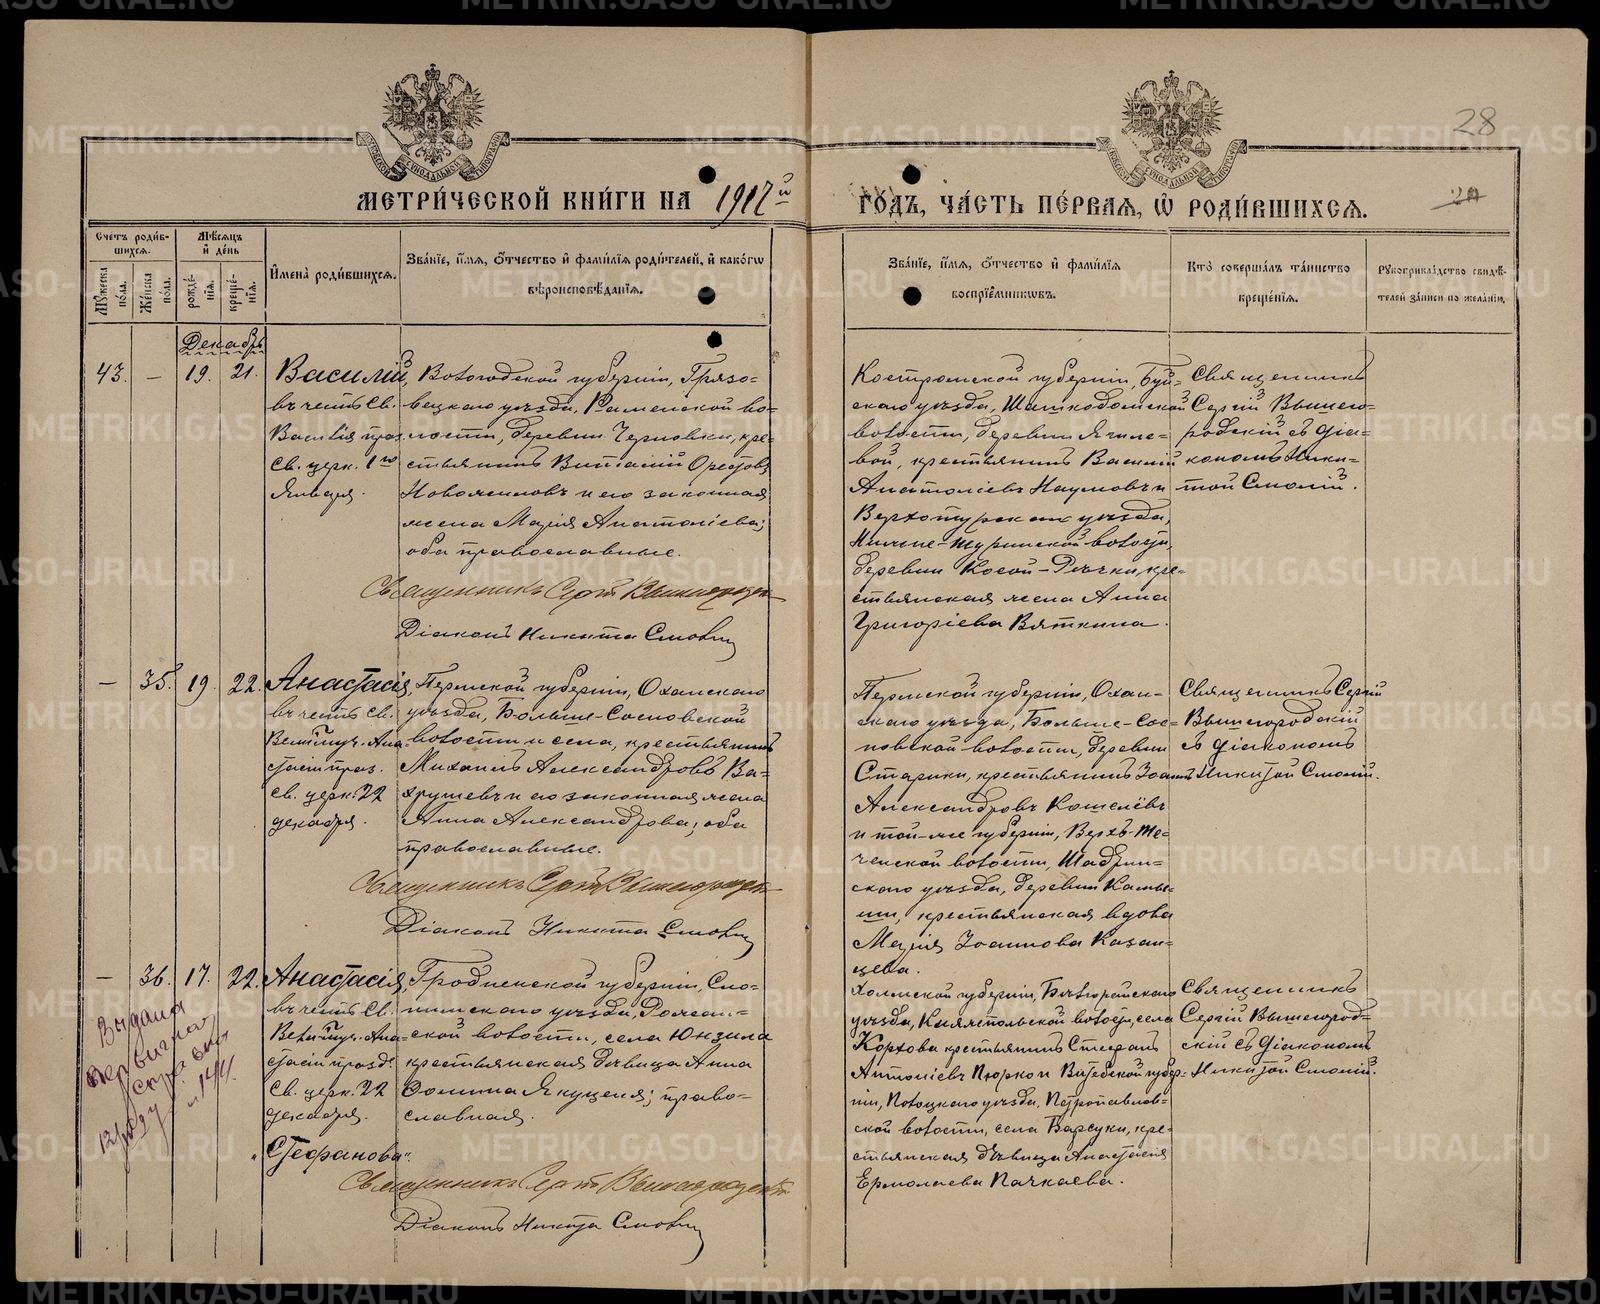 28
МЕТРИ́ЧЕСКОЙ КНИ́ГИ НА 1917й ГО́ДЪ, ЧА́СТЬ ПЕ́РВАЯ, Ѡ РОДИ́ВШИХСЯ.
Счетъ роди́в-
шихся.
Мѣсяцъ
и де́нь
Му́жеска
по́ла.
Же́нска
по́ла.
рожде́-
нія.
креще́-
нія.
Имена̀ роди́вшихся.
Зва́ніе, и́мя, о́тчество и фами́лія роди́телей, и како́гѡ
вѣроисповѣ́данія.
Зва́ніе, и́мя, о́тчество и фами́лія
воспріе́мниковъ.
Кто̀ соверша́лъ та́инство
креще́нія.
Рукоприкла́дство свидѣ́-
телей за́писи по жела́нію.
Декабрь
43. — 19. 21.
Василій,
въ честь Св.
Василія праз.
Св. церк. 1го
Января.
Вологодской губерніи, Грязо-
вецкаго уѣзда, Раменской во-
лости, деревни Черновки, кре-
стьянинъ Виталій Орестовъ
Новожиловъ и его законная
жена Марія Анатоліева;
оба православные.
Священникъ Сергій Вышегородскій
Діаконъ Никита Смолинъ
Костромской губерніи, Буй-
скаго уѣзда, Шашкобольской
волости, деревни Ягиле-
вой, крестьянинъ Василій
Анатоліевъ Наумовъ и
Верхотурскаго уѣзда,
Нижне-Туринской волости,
деревни Косой-Рѣчки, кре-
стьянская жена Анна
Григоріева Вяткина.
Священникъ
Сергій Вышего-
родскій съ діа-
кономъ Ники-
той Смолій.
— 35. 19. 22.
Анастасія,
въ честь Св.
Великмуч. Ана-
стасіи праз.
Св. церк. 22
декабря.
Пермской губерніи, Оханскаго
уѣзда, Больше-Сосновской
волости и села, крестьянинъ
Михаилъ Александровъ Ва-
хрушевъ и его законная жена
Анна Александрова; оба
православные.
Священникъ Сергій Вышегородскій
Діаконъ Никита Смолинъ
Пермской губерніи, Охан-
скаго уѣзда, Больше-Сос-
новской волости, деревни
Старики, крестьянинъ Іоаннъ
Александровъ Кошелёвъ
и той-же губерніи, Верхъ-Те-
ченской волости, Шадрин-
скаго уѣзда, деревни
крестьянская вдова
Марія Іоаннова Казан-
цева.
Священникъ Сергій
Вышегородскій
съ діакономъ
Никитой Смолій.
— 36. 17. 22.
Анастасія,
въ честь Св.
Великмуч. Ана-
стасіи празд.
Св. церк. 22
декабря.
„Стефанова".
Выдана
первичная
справка
Гродненской губерніи, Сло-
нимскаго уѣзда,
ской волости, села Юнзила
крестьянская дѣвица Анна
Фомина Якуценя; право-
славная.
Священникъ Сергій Вышегородскій
Діаконъ Никита Смолинъ
Холмской губерніи, Бѣлгорайскаго
уѣзда, Княжпольской волости, села
Корхова крестьянинъ Стефанъ
Антоніевъ Пюрко и Витебской губер-
ніи, Полоцкаго уѣзда, Петропавлов-
ской волости, села Барсуки, кре-
стьянская дѣвица Анастасія
Ермолаева Пачкаева.
Священникъ
Сергій Вышегород-
скій съ діакономъ
Никитой Смолій.
METRIKI.GASO-URAL.RU